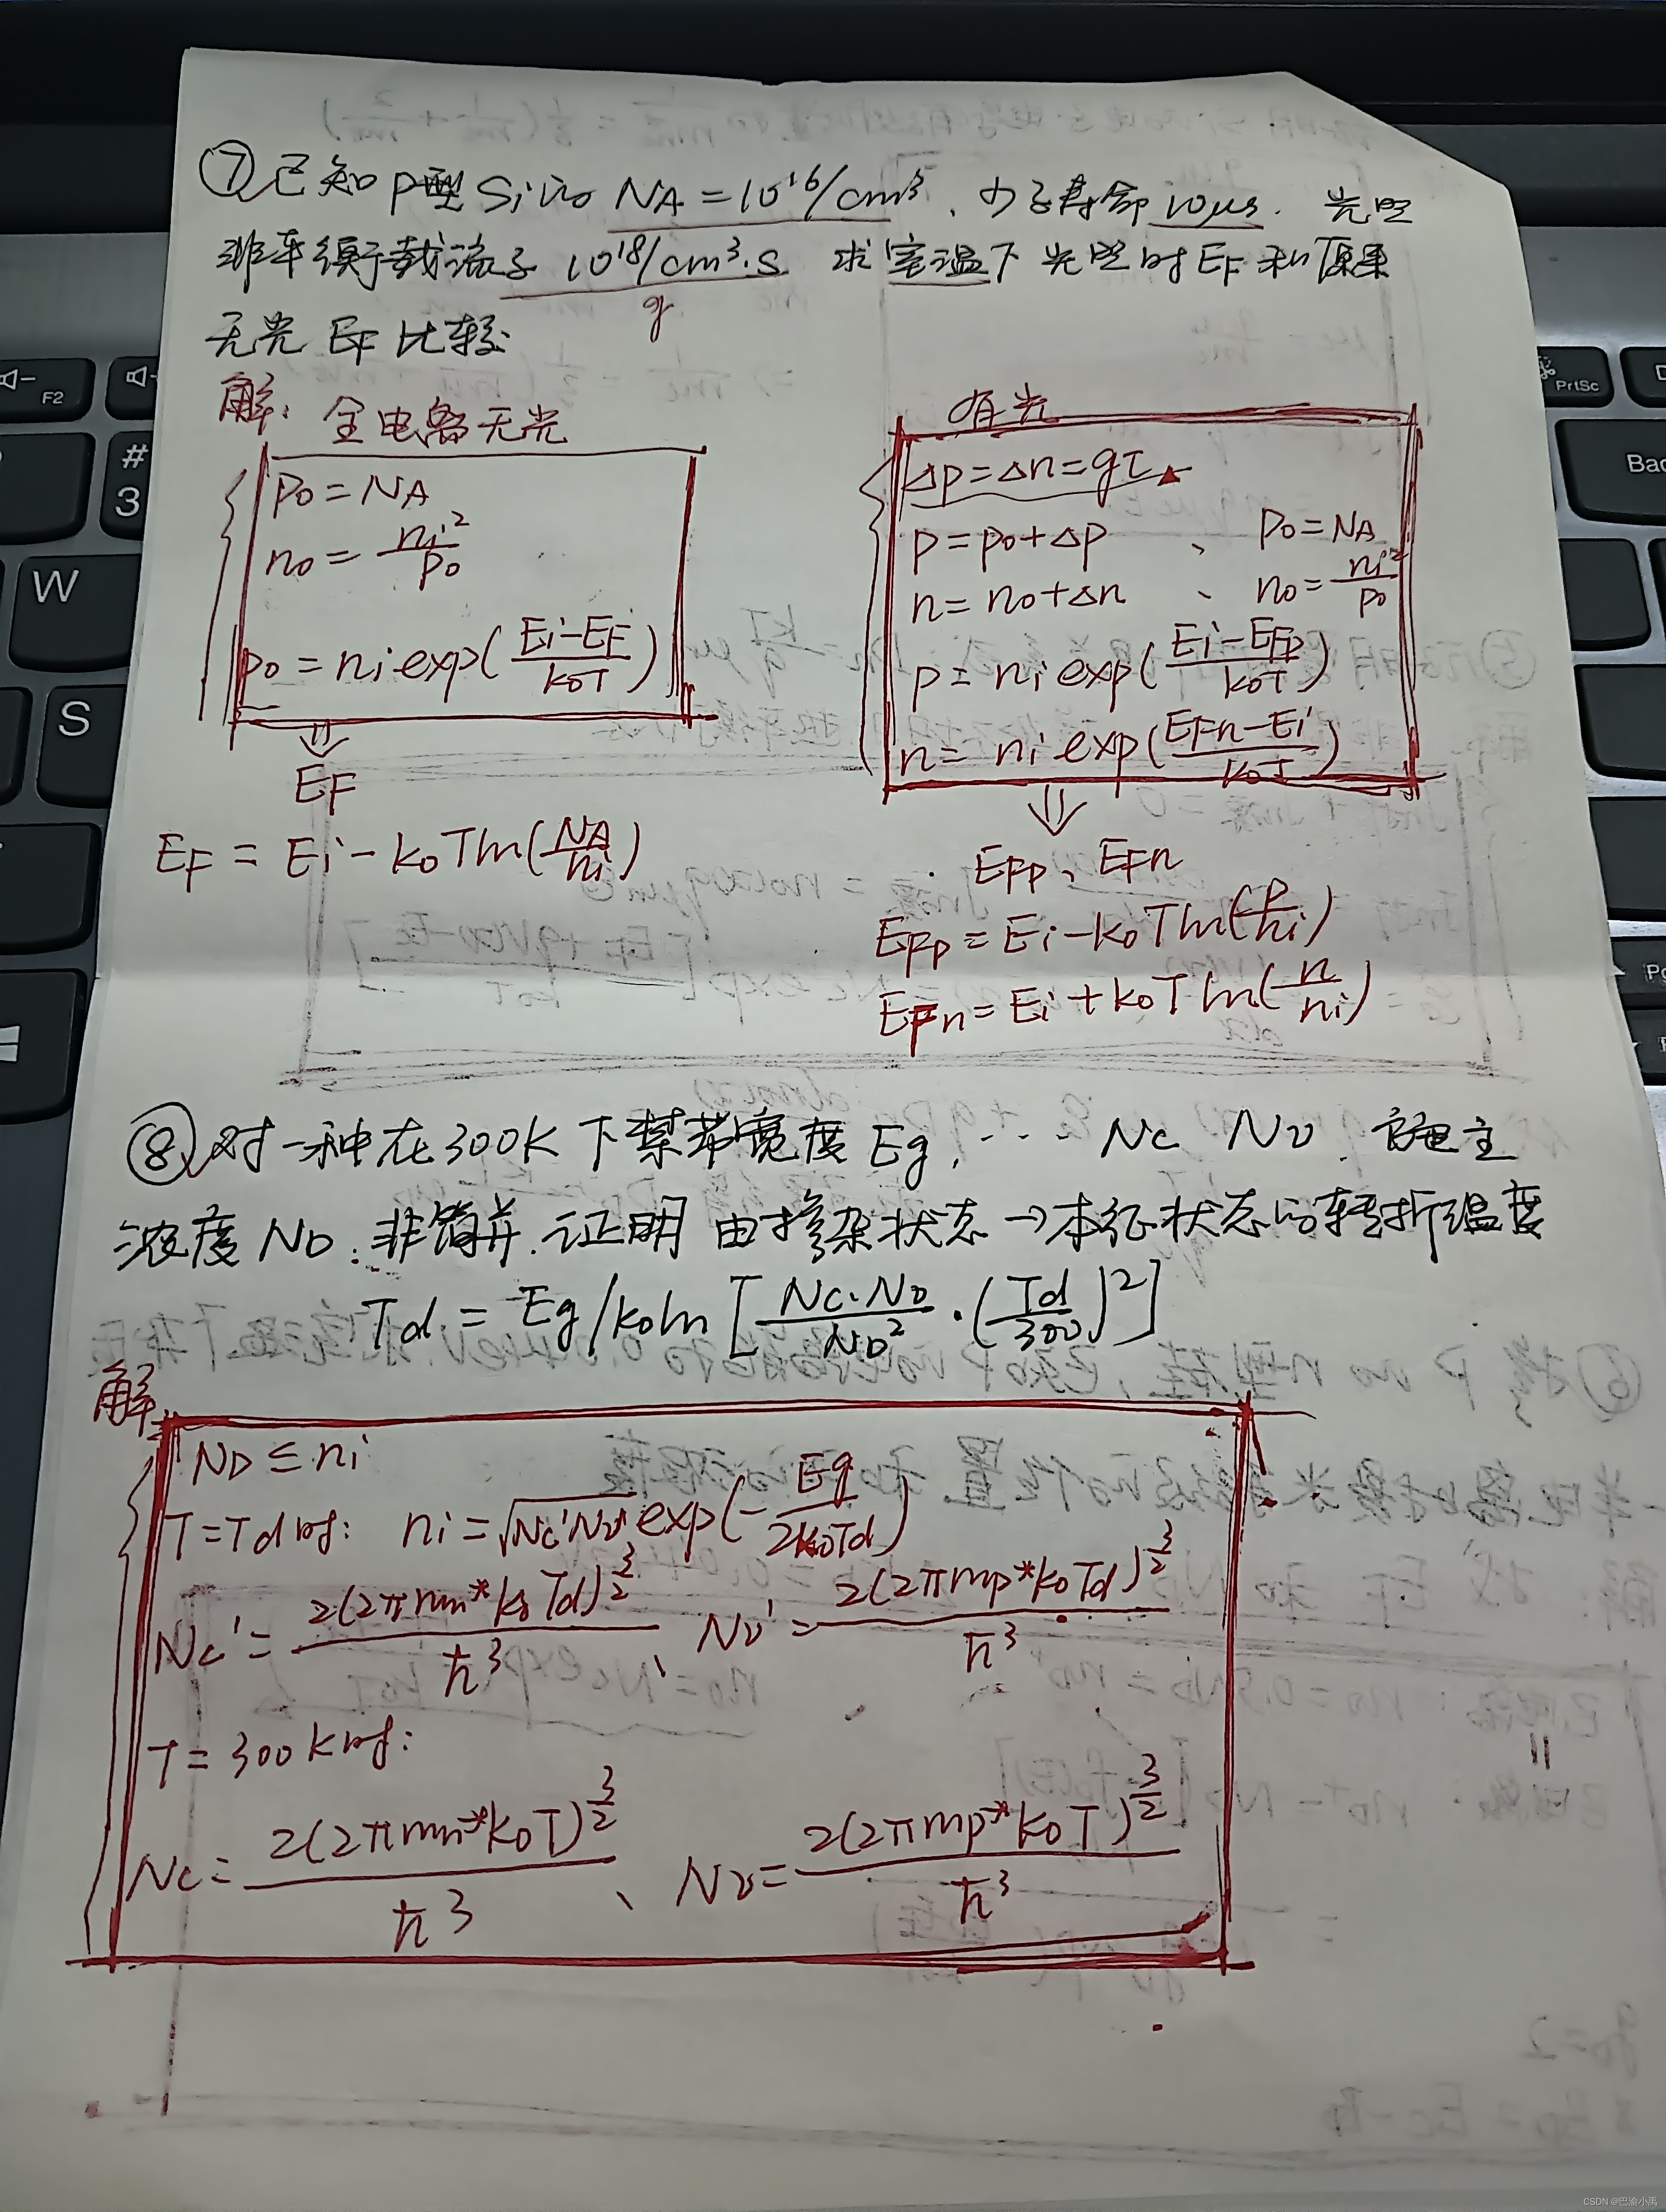 ⑦已知P型Si的 NA=10¹⁶/cm³、少子寿命10μs. 光照
非平衡载流子 10¹⁸/cm³·s 求室温下光照时EF和原来
g
无光 EF 比较
解: 全电离无光
p0=NA
n0=ni²/p0
p0=ni exp(Ei-EF/k0T)
⇓
EF
EF=Ei-k0Tln(NA/ni)
有光
Δp=Δn=gτ
p=p0+Δp 、 p0=NA
n=n0+Δn 、 n0=ni²/p0
p=ni exp(Ei-EFp/k0T)
n=ni exp(EFn-Ei/k0T)
⇓
EFp、EFn
EFp=Ei-k0Tln(p/ni)
EFn=Ei+k0Tln(n/ni)
⑧对一种在300K下禁带宽度Eg, ... Nc Nv. 施主
浓度ND. 非简并. 证明 由掺杂状态→本征状态的转折温度
Td=Eg/k0ln[Nc·Nv/ND²·(Td/300)²]
解
ND≤ni
T=Td时: ni=√Nc'Nv' exp(-Eg/2k0Td)
Nc'=2(2πmn*k0Td)^3/2/ħ³、Nv'=2(2πmp*k0Td)^3/2/ħ³
T=300K时:
Nc=2(2πmn*k0T)^3/2/ħ³、Nv=2(2πmp*k0T)^3/2/ħ³
F2
#
3
W
S
PrtSc
Bac
CSDN @巴渝小禹